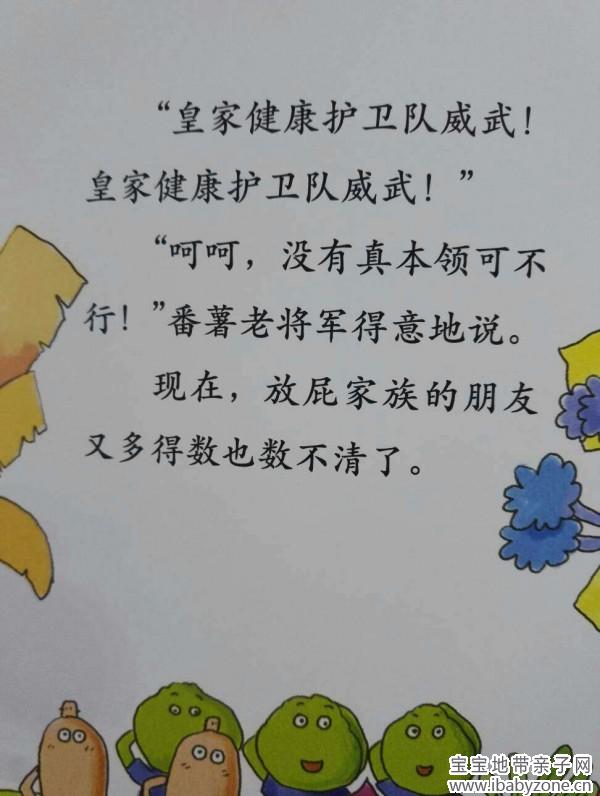 “皇家健康护卫队威武！
皇家健康护卫队威武！”
“呵呵，没有真本领可不
行！”番薯老将军得意地说。
现在，放屁家族的朋友
又多得数也数不清了。
宝宝地带亲子网
www.ibabyzone.cn